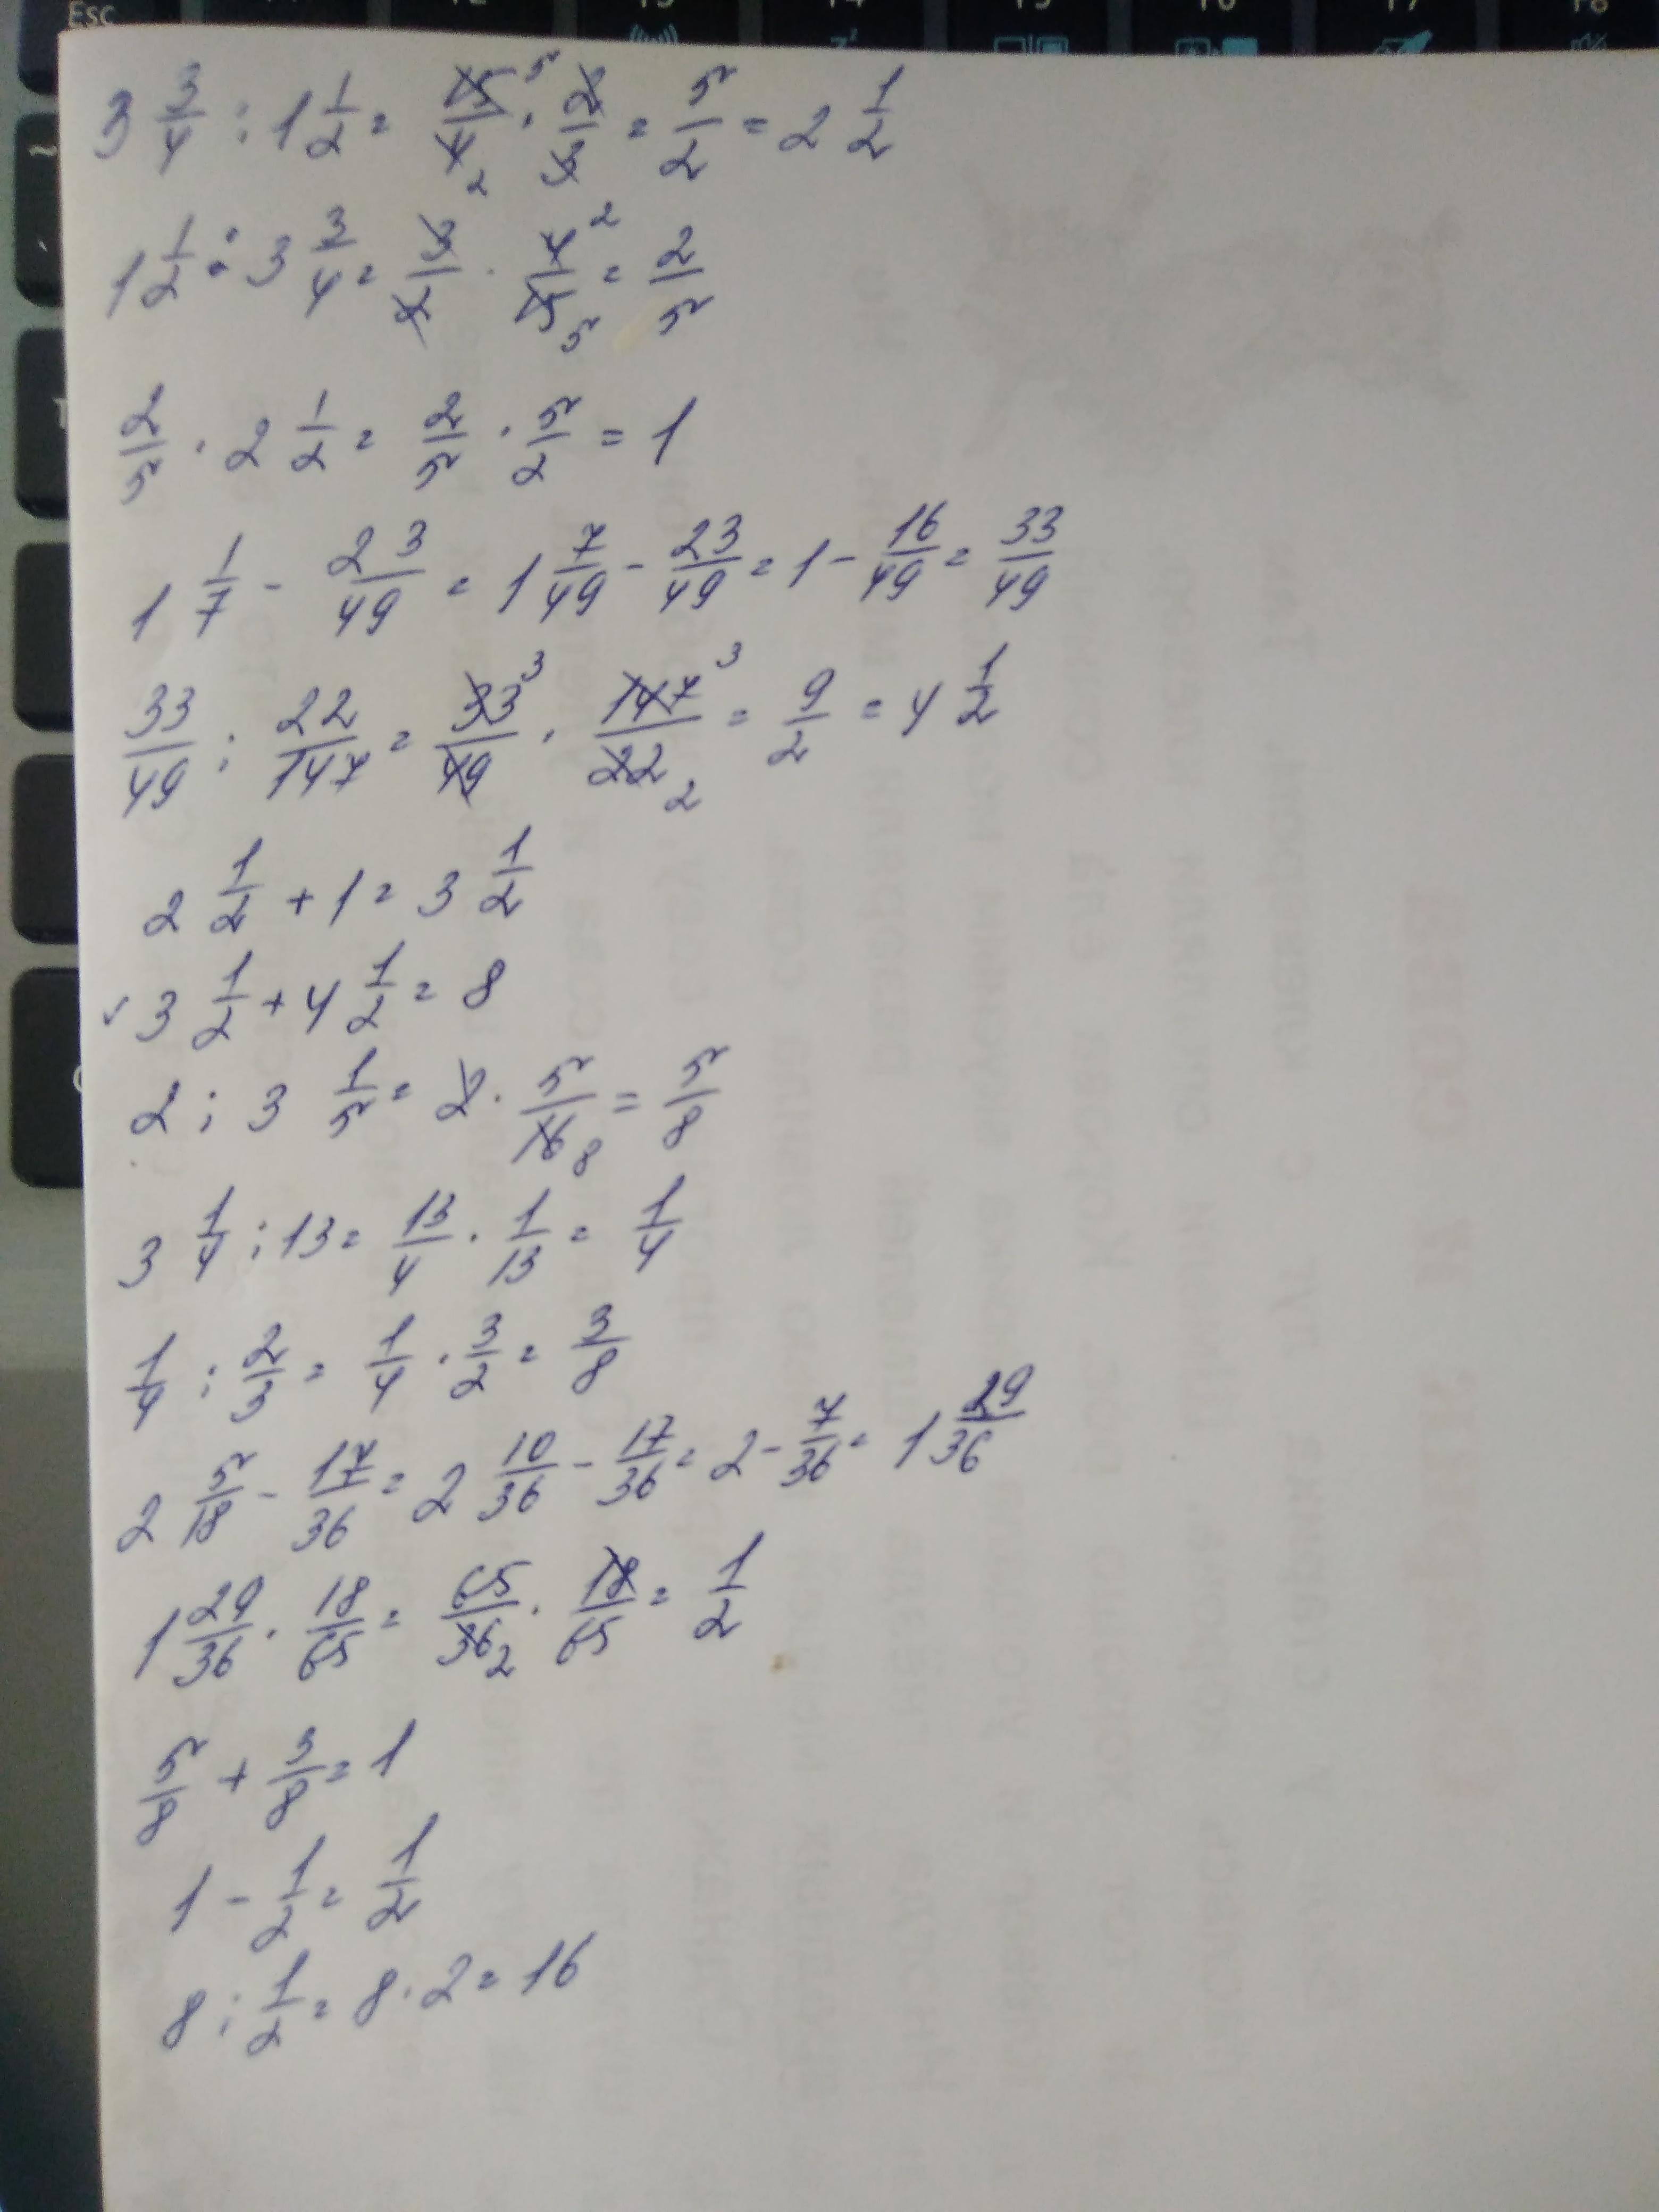 Esc
3 3/4 : 1 1/2 = 15/4 · 2/3 = 5/2 = 2 1/2
1 1/2 : 3 3/4 = 3/2 · 4/15 = 2/5
2/5 · 2 1/2 = 2/5 · 5/2 = 1
1 1/7 - 23/49 = 1 7/49 - 23/49 = 1 - 16/49 = 33/49
33/49 : 22/147 = 33/49 · 147/22 = 9/2 = 4 1/2
2 1/2 + 1 = 3 1/2
✓ 3 1/2 + 4 1/2 = 8
2 : 3 1/5 = 2 · 5/16 = 5/8
3 1/4 : 13 = 13/4 · 1/13 = 1/4
1/4 : 2/3 = 1/4 · 3/2 = 3/8
2 5/18 - 17/36 = 2 10/36 - 17/36 = 2 - 7/36 = 1 29/36
1 29/36 · 18/65 = 65/36 · 18/65 = 1/2
5/8 + 3/8 = 1
1 - 1/2 = 1/2
8 : 1/2 = 8 · 2 = 16